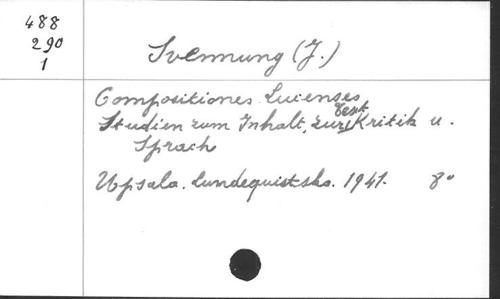 488
290
1
Svennung (J.)
Compositiones Lucenses
Studien zum Inhalt, zur Text Kritik u.
Sprach
Upsala. Lundequistska. 1941. 8°